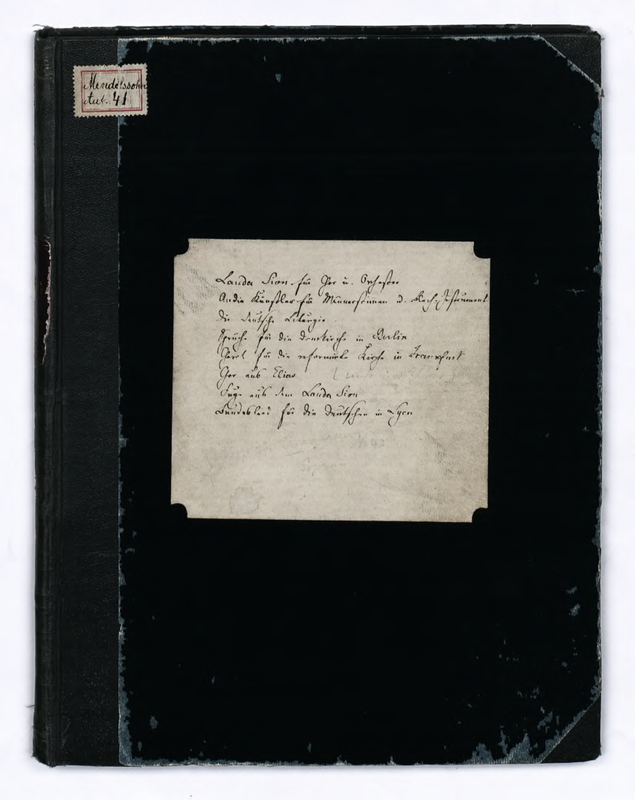 Mendelssohn
Aut. 41
Lauda Sion für Chor u. Orchester
An die Künstler für Männerstimmen u. Blech-Instrument
Die deutsche Liturgie
Sprüche für die Domkirche in Berlin
für die reformirte Kirche in Frankfurt
Chor aus Elias
Fuge aus dem Lauda Sion
Bundeslied für die Deutschen in Lyon